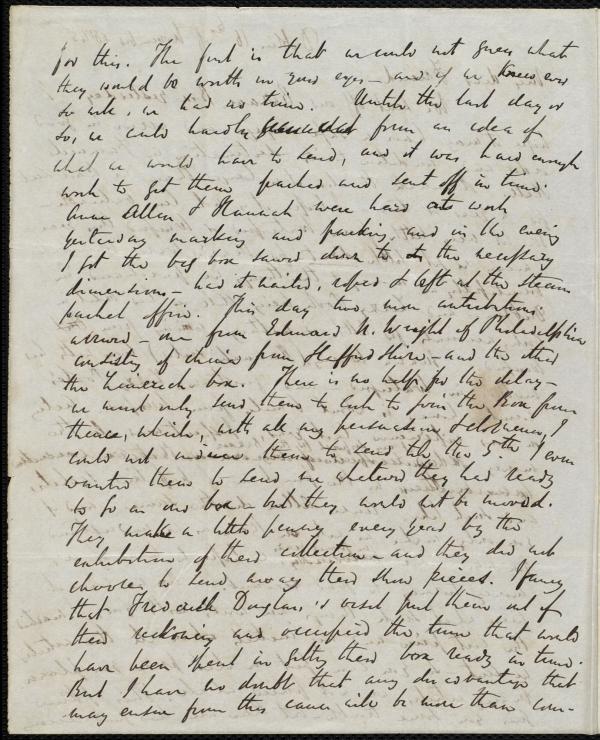 for this. The fact is that we could not guess what
they would be worth in your eyes - and if we knew ever
so well, we had no time. Until the last day or
so, we could hardly from an idea of
what we would have to send, and it was hard enough
work to get them packed and sent off in time.
Anne Allen & Hannah were hard at work
yesterday marking and packing, and in the evening
I got the big box sawed down to the necessary
dimensions - had it nailed, roped & left at the Steam
packet office. This day two more contributions
arrived - one from Edward N. Wright of Philadelphia
consisting of china from Staffordshire - and the other
the Limerick box. There is no help for the delay -
we must only send them to Cork to join the Box from
thence, which, with all my persuasion & eloquence, I
could not induce them to send till the 5th. I even
wanted them to send me whatever they had ready
to go in our box - but they would not be moved.
They make a little penny every year by the
exhibition of their collection - and they did not
choose to send away their show pieces. I fancy
that Frederick Douglass's visit put them out of
their reckoning and occupied the time that would
have been spent in getting their box ready in time.
But I have no doubt that any disadvantage that
may ensue from this cause will be more than com-